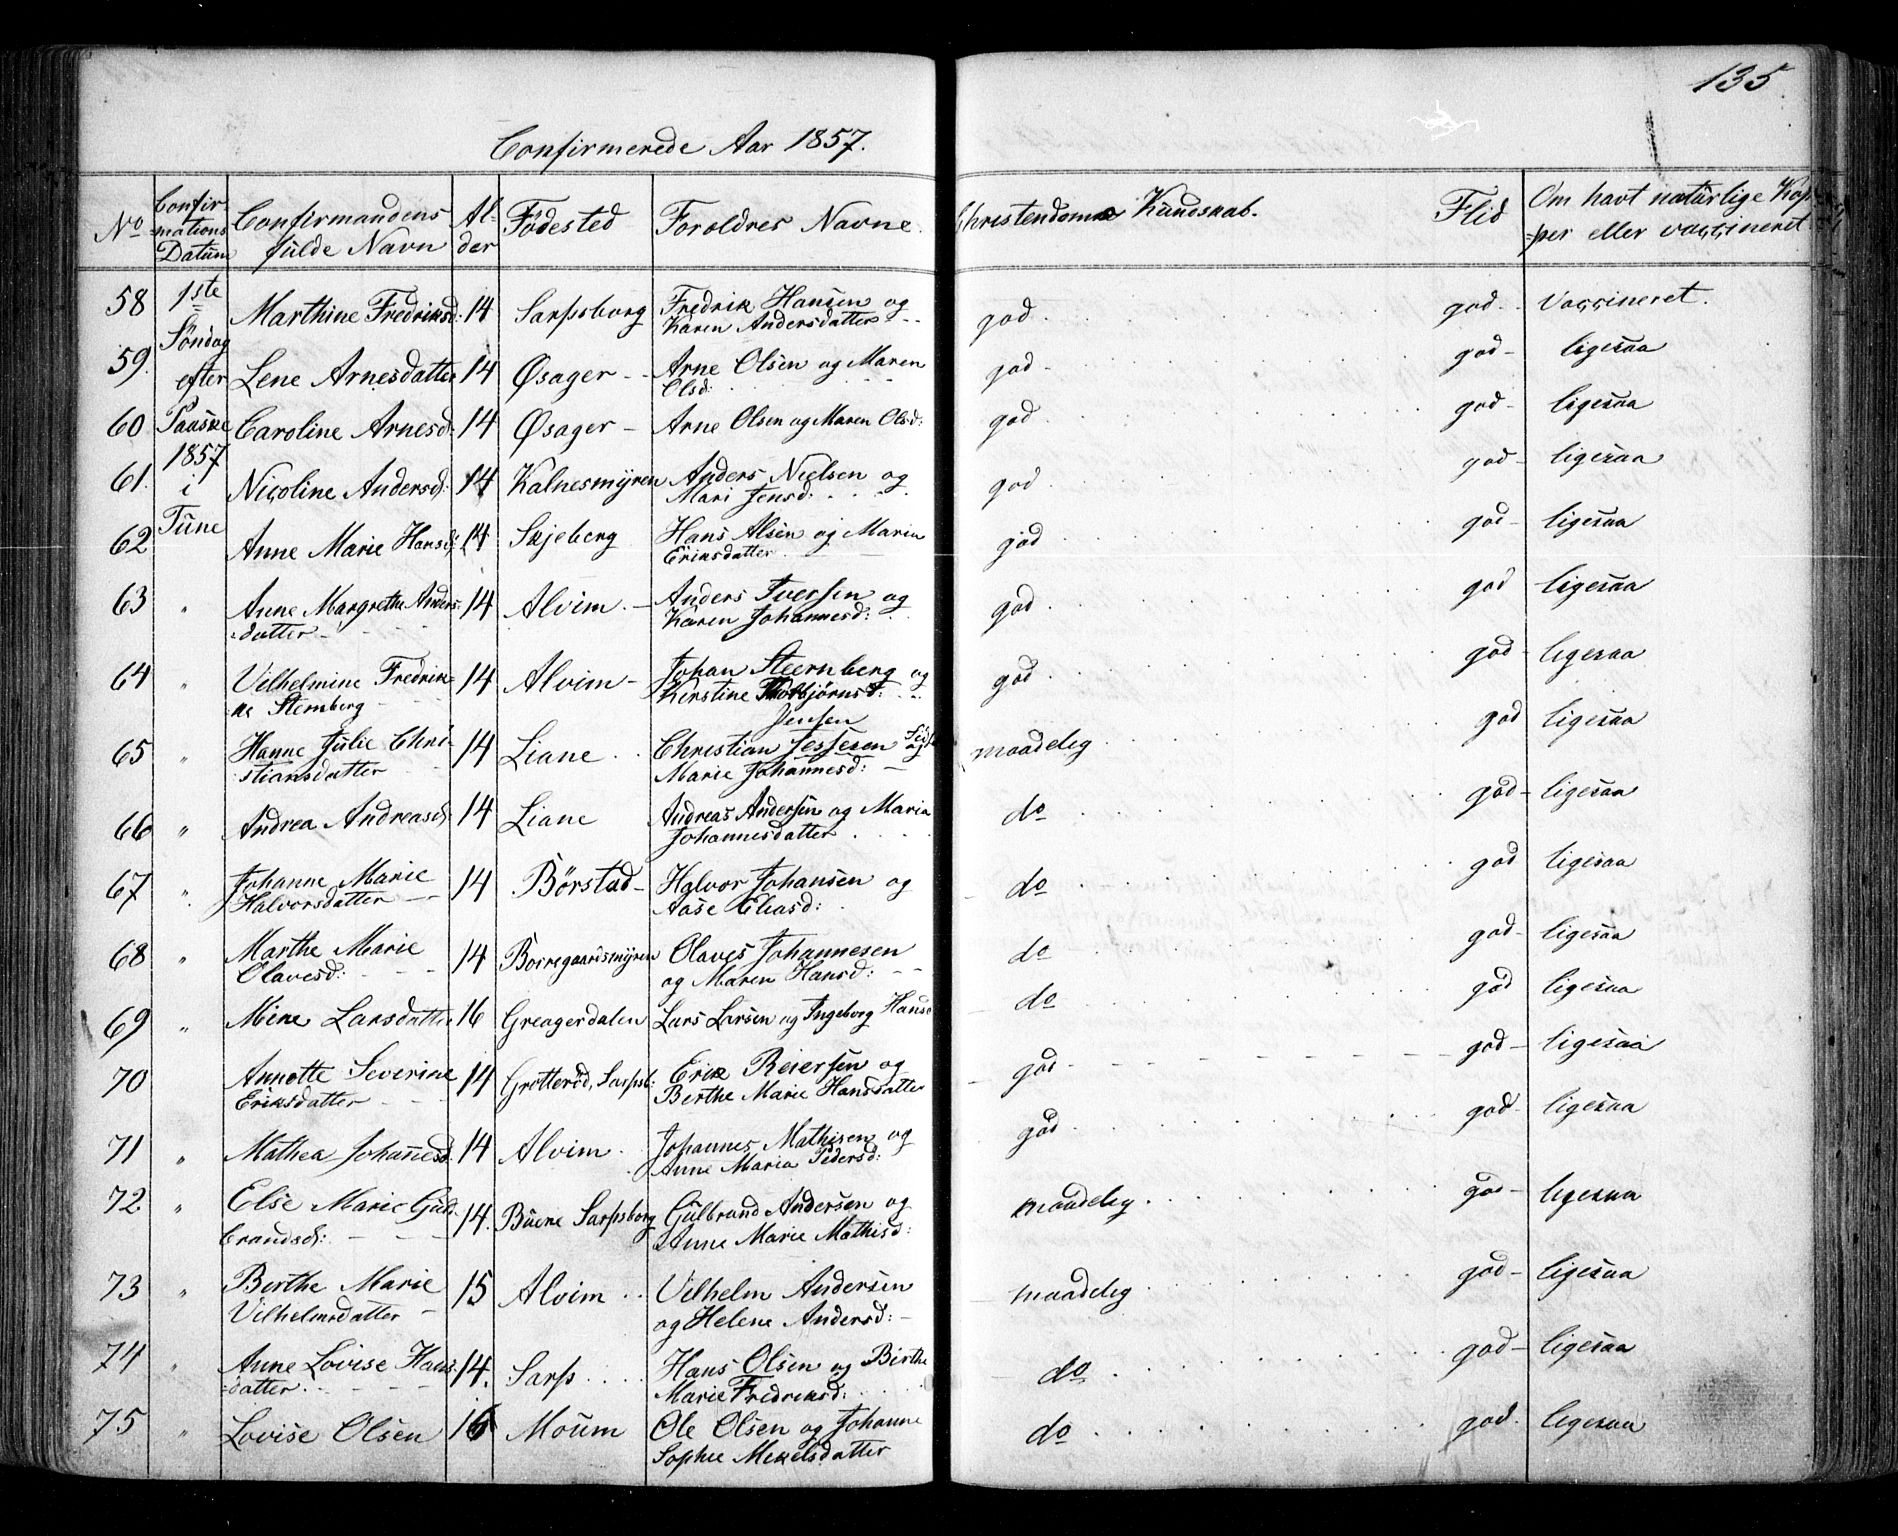 135
Confirmerede Aar 1857.
No Confirmations Datum Confirmandens fulde Navn Alder Födested Forældres Navne Christendoms Kundskab. Flid Om havt natürlige Kopper eller vaccineret
58 1ste Marthine Fredriksd: 14 Sarpsborg Fredrik Hansen og god god Vaccineret.
Karen Andersdatter
Söndag
59. efter Lene Arnesdatter 14 Øsager Arne Olsen og Maren god god ligesaa
Olsd:
60 Paaske Caroline Arnesd: 14 Øsager Arne Olsen og Maren Olsd: god god ligesaa
1857
61. i Nicoline Andersd: 14 Kalnesmÿren Anders Nielsen og god god ligesaa
Mari Jensd:
Tüne
62 Anne Marie Hansd: 14 Skjeberg Hans Alsen og Maria god god ligesaa
Eriksdatter
63 " Anne Margrethe Anders- 14 Alvim Anders Iversen og god god ligesaa
datter Karen Johannesd:
64 " Vilhelmine Fredrik- 14 Alvim Johan Steernberg og god god ligesaa
ke Sternberg Kerstine Thorbjørnsd:
Jensen
65 " Hanne Julie Chri- 14 Liane Christian Jessesen og maadelig god ligesaa
stiansdatter Marie Johannesd:
66 " Andrea Andreasd: 14 Liane Andreas Andersen og Maria do god ligesaa
Johannesdatter
67 " Johanne Marie 14 Börstad Halvor Johansen og do god ligesaa
Halvorsdatter Aase Eliasd:
68 " Marthe Marie 14 Borregaardsmÿren Olaves Johannesen do god ligesaa
Olavesd: og Maren Hansd:
69 " Mine Larsdatter 16 Greagerdalen Lars Larsen og Ingeborg Hansd do god ligesaa
70 Annette Severine 14 Grötteröd, Sarpsb: Erik Reiersen og god god ligesaa
Eriksdatter Berthe Marie Hansdatter
71 " Mathea Johannesd. 14 Alvim Johannes Mathisen og god god ligesaa
Anne Maria Pedersd:
72. " Else Marie Gül- 14. Büene Sarpsborg Gülbrand Andersen og maadelig god ligesaa
brandsd: Anne Marie Mathisd:
73 " Berthe Marie 15 Alvim Vilhelm Andersen maadelig god ligesaa
Vilhelmsdatter og Helene Andersd:
74 " Anne Lovise Hans- 14. Sarp Hans Olsen og Birthe do god ligesaa
datter Marie Fredriksd:
75 " Lovise Olsen 16 Moüm Ole Olsen og Johanne do god. ligesaa
Sophie Mikelsdatter